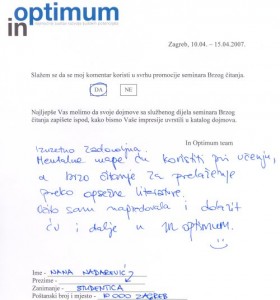 in optimum
Zagreb, 10.04. – 15.04.2007.
Slažem se da se moj komentar koristi u svrhu promocije seminara Brzog čitanja.
DA NE
Najljepše Vas molimo da svoje dojmove sa službenog dijela seminara Brzog
čitanja zapišete ispod, kako bismo Vaše impresije uvrstili u katalog dojmova.
In Optimum team
Izuzetno zadovoljna.
Mentalne mape ću koristiti pri učenju,
a brzo čitanje za prelaženje
preko opsežne literature.
Jako sam napredovala i dolazit
ću i dalje u in optimum.
Ime - NANA NADAREVIĆ
Prezime -
Zanimanje - STUDENTICA
Poštanski broj i mjesto - 10000 ZAGREB